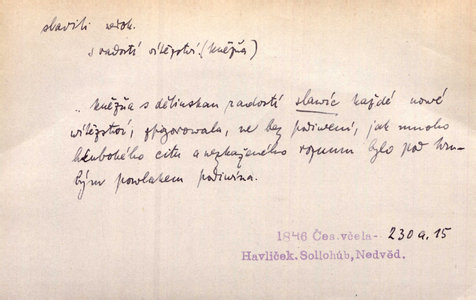 slaviti nedok.
s radostí vítězství (kněžňa)
„ kněžňa s dětinskau radostí slawíc každé nové
wítězstwí, zpozorowala, ne bez podiwení, jak mnoho
hlubokého citu a nezkaženého rozumu bylo pod hru-
bým powlakem podiwína.
1846 Čes. včela- 230 a. 15
Havlíček. Sollohúb, Nedvěd.